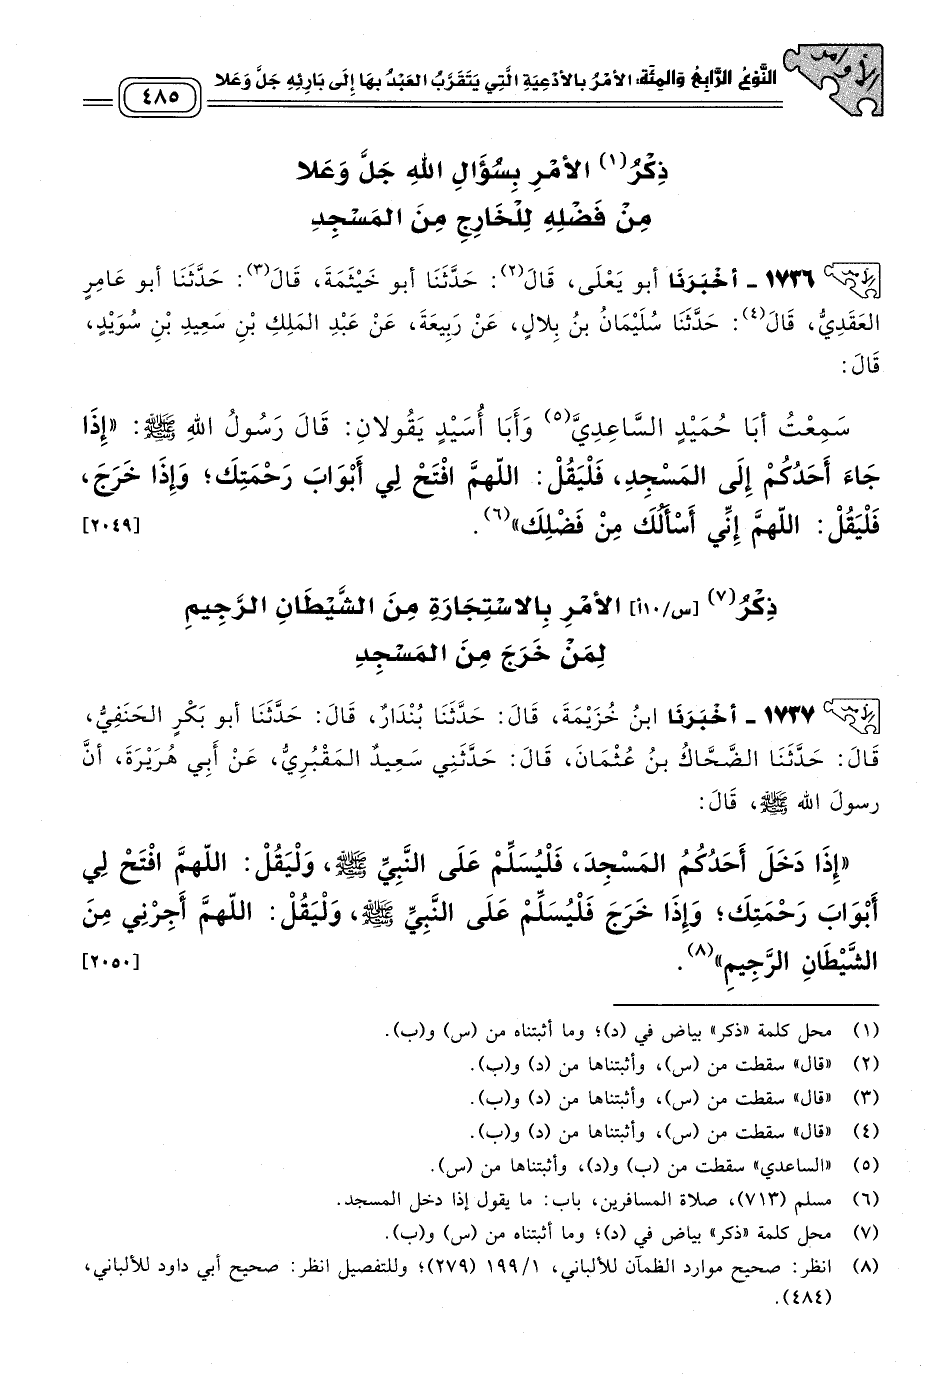 الأوامر
النَّوْعُ الرَّابِعُ وَالمِئَة: الأَمْرُ بِالأَدْعِيَةِ الَّتِي يَتَقَرَّبُ العَبْدُ بِهَا إِلَى بَارِئِهِ جَلَّ وَعَلا
٤٨٥
ذِكْرُ(١) الأَمْرِ بِسُؤَالِ اللهِ جَلَّ وَعَلا
مِنْ فَضْلِهِ لِلْخَارِجِ مِنَ المَسْجِدِ
١٧٣٦ - أَخْبَرَنَا أبو يَعْلَى، قَالَ(٢): حَدَّثَنَا أبو خَيْثَمَةَ، قَالَ(٣): حَدَّثَنَا أبو عَامِرٍ
العَقَدِيُّ، قَالَ(٤): حَدَّثَنَا سُلَيْمَانُ بنُ بِلالٍ، عَنْ رَبِيعَةَ، عَنْ عَبْدِ المَلِكِ بْنِ سَعِيدِ بْنِ سُوَيْدٍ،
قَالَ:
سَمِعْتُ أبَا حُمَيْدٍ السَّاعِدِيَّ(٥) وَأبَا أُسَيْدٍ يَقُولانِ: قَالَ رَسُولُ اللهِ ﷺ: «إِذَا
جَاءَ أَحَدُكُمْ إِلَى المَسْجِدِ، فَلْيَقُلْ: اللهمَّ افْتَحْ لِي أَبْوَابَ رَحْمَتِكَ؛ وَإِذَا خَرَجَ،
فَلْيَقُلْ: اللهمَّ إِنِّي أَسْأَلُكَ مِنْ فَضْلِكَ»(٦). [٢٠٤٩]
ذِكْرُ(٧) [س/١٠أ] الأَمْرِ بِالاسْتِجَارَةِ مِنَ الشَّيْطَانِ الرَّجِيمِ
لِمَنْ خَرَجَ مِنَ المَسْجِدِ
١٧٣٧ - أَخْبَرَنَا ابنُ خُزَيْمَةَ، قَالَ: حَدَّثَنَا بُنْدَارٌ، قَالَ: حَدَّثَنَا أبو بَكْرٍ الحَنَفِيُّ،
قَالَ: حَدَّثَنَا الضَّحَّاكُ بنُ عُثْمَانَ، قَالَ: حَدَّثَنِي سَعِيدٌ المَقْبُرِيُّ، عَنْ أَبِي هُرَيْرَةَ، أنَّ
رسولَ الله ﷺ، قَالَ:
«إِذَا دَخَلَ أَحَدُكُمُ المَسْجِدَ، فَلْيُسَلِّمْ عَلَى النَّبِيِّ ﷺ، وَلْيَقُلْ: اللهمَّ افْتَحْ لِي
أَبْوَابَ رَحْمَتِكَ؛ وَإِذَا خَرَجَ فَلْيُسَلِّمْ عَلَى النَّبِيِّ ﷺ، وَلْيَقُلْ: اللهمَّ أَجِرْنِي مِنَ
الشَّيْطَانِ الرَّجِيمِ»(٨). [٢٠٥٠]
(١) محل كلمة «ذكر» بياض في (د)؛ وما أثبتناه من (س) و(ب).
(٢) «قال» سقطت من (س)، وأثبتناها من (د) و(ب).
(٣) «قال» سقطت من (س)، وأثبتناها من (د) و(ب).
(٤) «قال» سقطت من (س)، وأثبتناها من (د) و(ب).
(٥) «الساعدي» سقطت من (ب) و(د)، وأثبتناها من (س).
(٦) مسلم (٧١٣)، صلاة المسافرين، باب: ما يقول إذا دخل المسجد.
(٧) محل كلمة «ذكر» بياض في (د)؛ وما أثبتناه من (س) و(ب).
(٨) انظر: صحيح موارد الظمآن للألباني، ١/ ١٩٩ (٢٧٩)؛ وللتفصيل انظر: صحيح أبي داود للألباني،
(٤٨٤).